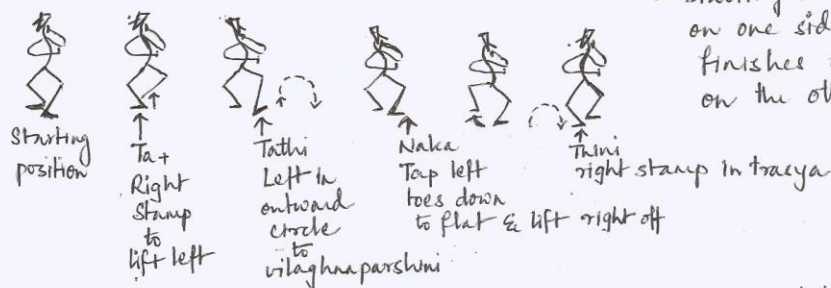 on one sid
finishes
on the ot
Starting
position
Ta+
Right
Stamp
to
lift left
Tathi
Left in
outward
circle
to
vilaghnaparshni
Naka
Tap left
toes down
to flat & lift right off
Thini
right stamp in trasya